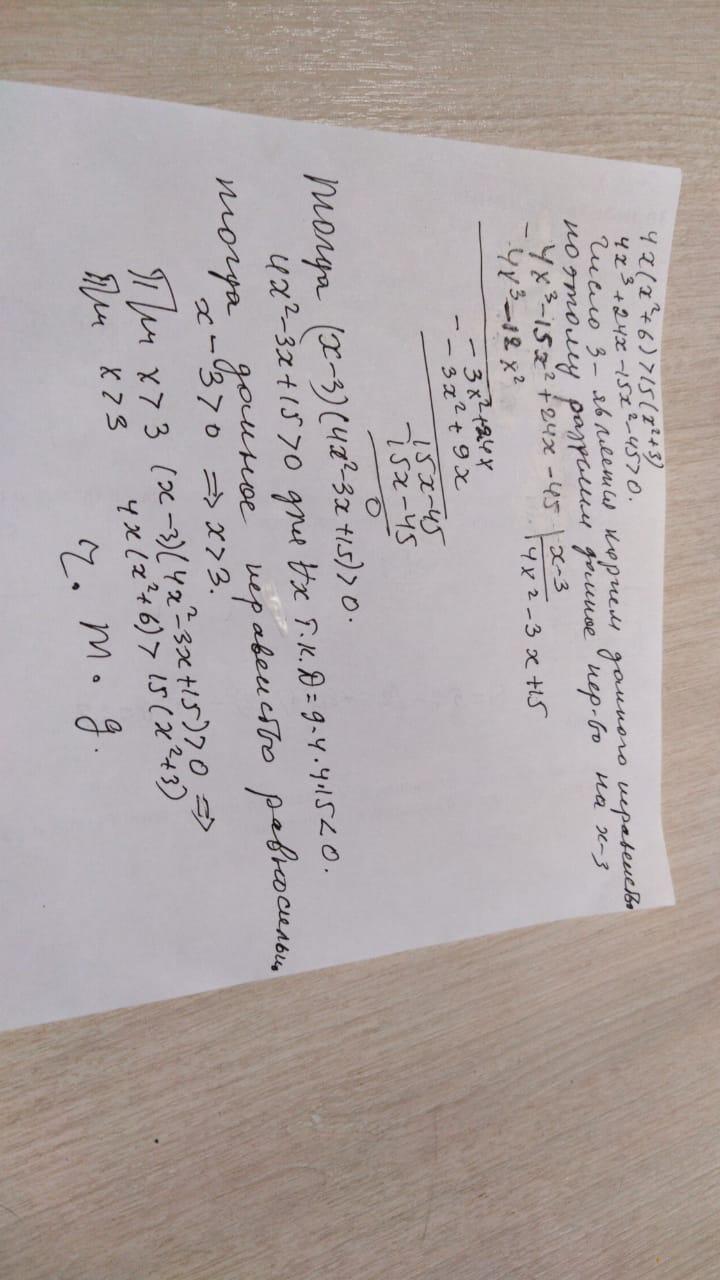 4x(x²+6)>15(x²+3)
4x³+24x-15x²-45>0.
Число 3 - является корнем данного неравенства
поэтому разделим данное нер-во на x-3
- 4x³-15x²+24x-45 | x-3
4x³-12x² | 4x²-3x+15
- -3x²+24x
-3x²+9x
- 15x-45
15x-45
0
Тогда (x-3)(4x²-3x+15)>0.
4x²-3x+15>0 для ∀x т.к. D=9-4·4·15<0.
Тогда данное неравенство равносильно
x-3>0 ⇒ x>3.
При x>3 (x-3)(4x²-3x+15)>0 ⇒
При x>3 4x(x²+6)>15(x²+3)
ч. т. д.